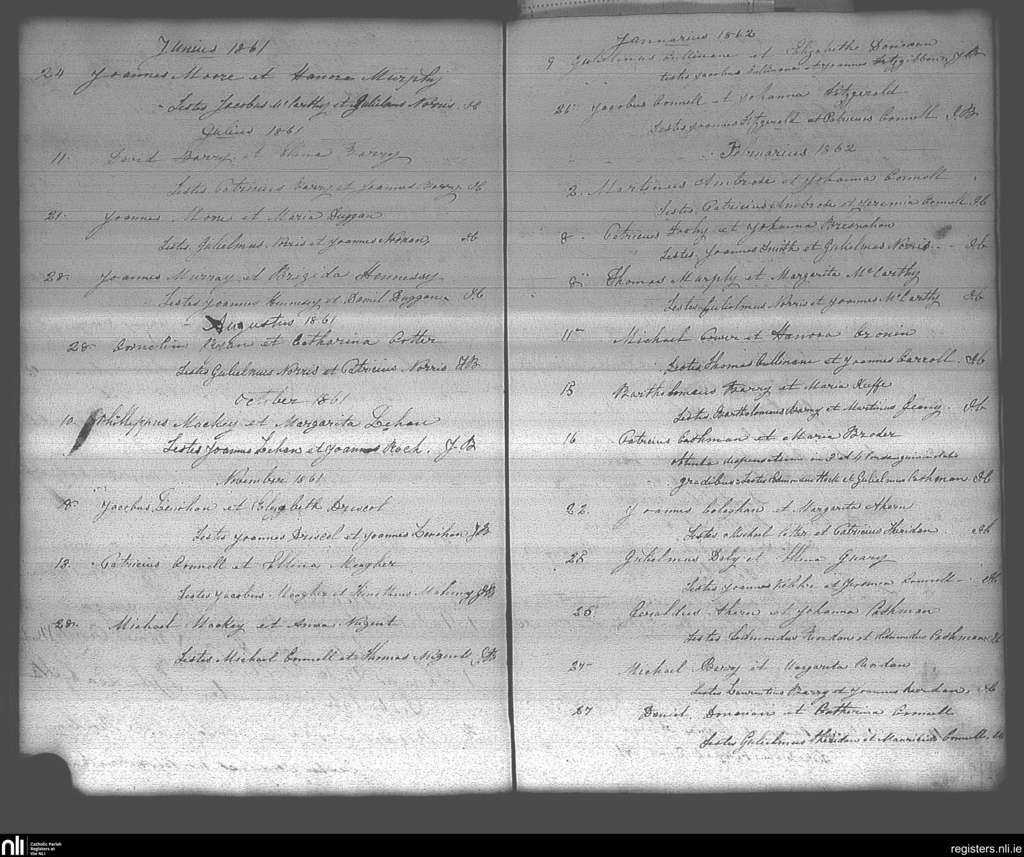 Junius 1861
24 Joannes Moore et Hanora Murphy
Testes Jacobus McCarthy et Gulielmus Norris. Jb
Julius 1861
11. David Barry et Ellena Barry
Testes Patricius Barry et Joannes Barry Jb
21. Joannes Moore et Maria Duggan
Testes Gulielmus Norris et Joannes Noonan, Jb
28. Joannes Murray et Brigida Hennessy
Testes Joannes Hennessy et Daniel Duggan Jb
Augustus 1861
28. Cornelius Ryan et Catharina Cotter
Testes Gulielmus Norris et Patricius Norris JB
October 1861
10. Phillippus Mackey et Margarita Lehan
Testes Joannes Lehan et Joannes Roch. J. B
November 1861
18. Jacobus Linehan et Elizabeth Driscol
Testes Joannes Driscol et Joannes Linehan JB
18. Patricius Connell et Ellena Meagher
Testes Jacobus Meagher et Timotheus Mahony JB
28. Michael Mackey et Anna Nugent
Testes Michael Connell et Thomas Nugent JB
Januarius 1862
9 Gulielmus Cullinane et Elizabetha Donovan
testes Jacobus Cullinane et Joannes Fitzgibbon JB
26. Jacobus Connell et Johanna Fitzgerald
Testes Joannes Fitzgerald et Patricius Connell J.B
Februarius 1862
2. Martinus Ambrose et Johanna Connell
Testes, Patricius Ambrose et Jeremia Connell Jb
8. Patricius et Johanna Bresnahan
Testes, Joannes Smith et Gulielmus Norris Jb
8 Thomas Murphy et Margarita McCarthy
Testes Gulielmus Norris et Joannes McCarthy Jb
11 Michael Power et Hanora Cronin
Testes Thomas Cullinane et Joannes Carroll. Jb
15 Bartholomaeus Barry et Maria Keffe
Testes Bartholomeus Barry et Martinus Jb
16 Patricius Cashman et Maria Broder
obtenta dispensatione in 3 et 4 consanguinitatis
gradibus. Testes Edmondus Roch et Gulielmus Cashman Jb
22. Joannes et Margarita Ahern
Testes Michael Cotter et Patricius Sheridan Jb
25 Gulielmus Daly et Ellena Geary
Testes Joannes et Jeremia Connell Jb
25 Geraldus Ahern et Johanna Cashman
Testes Edmundus Riordan et Edmundus Cashman Jb
27 Michael Barry et Margarita Riordan
Testes Laurentius Barry et Joannes Riordan, Jb
27 Daniel Donovan et Catherina Connell
Testes Gulielmus Sheridan et Mauritius Connell.
nli Catholic Parish
Registers at
the NLI
registers.nli.ie